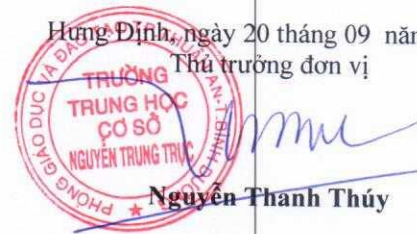 Hưng Định, ngày 20 tháng 09 năm
Thủ trưởng đơn vị
PHÒNG GIÁO DỤC VÀ ĐÀO TẠO THUẬN AN-T.BÌNH DƯƠNG
TRƯỜNG
TRUNG HỌC
CƠ SỞ
NGUYỄN TRUNG TRỰC
Nguyễn Thanh Thúy